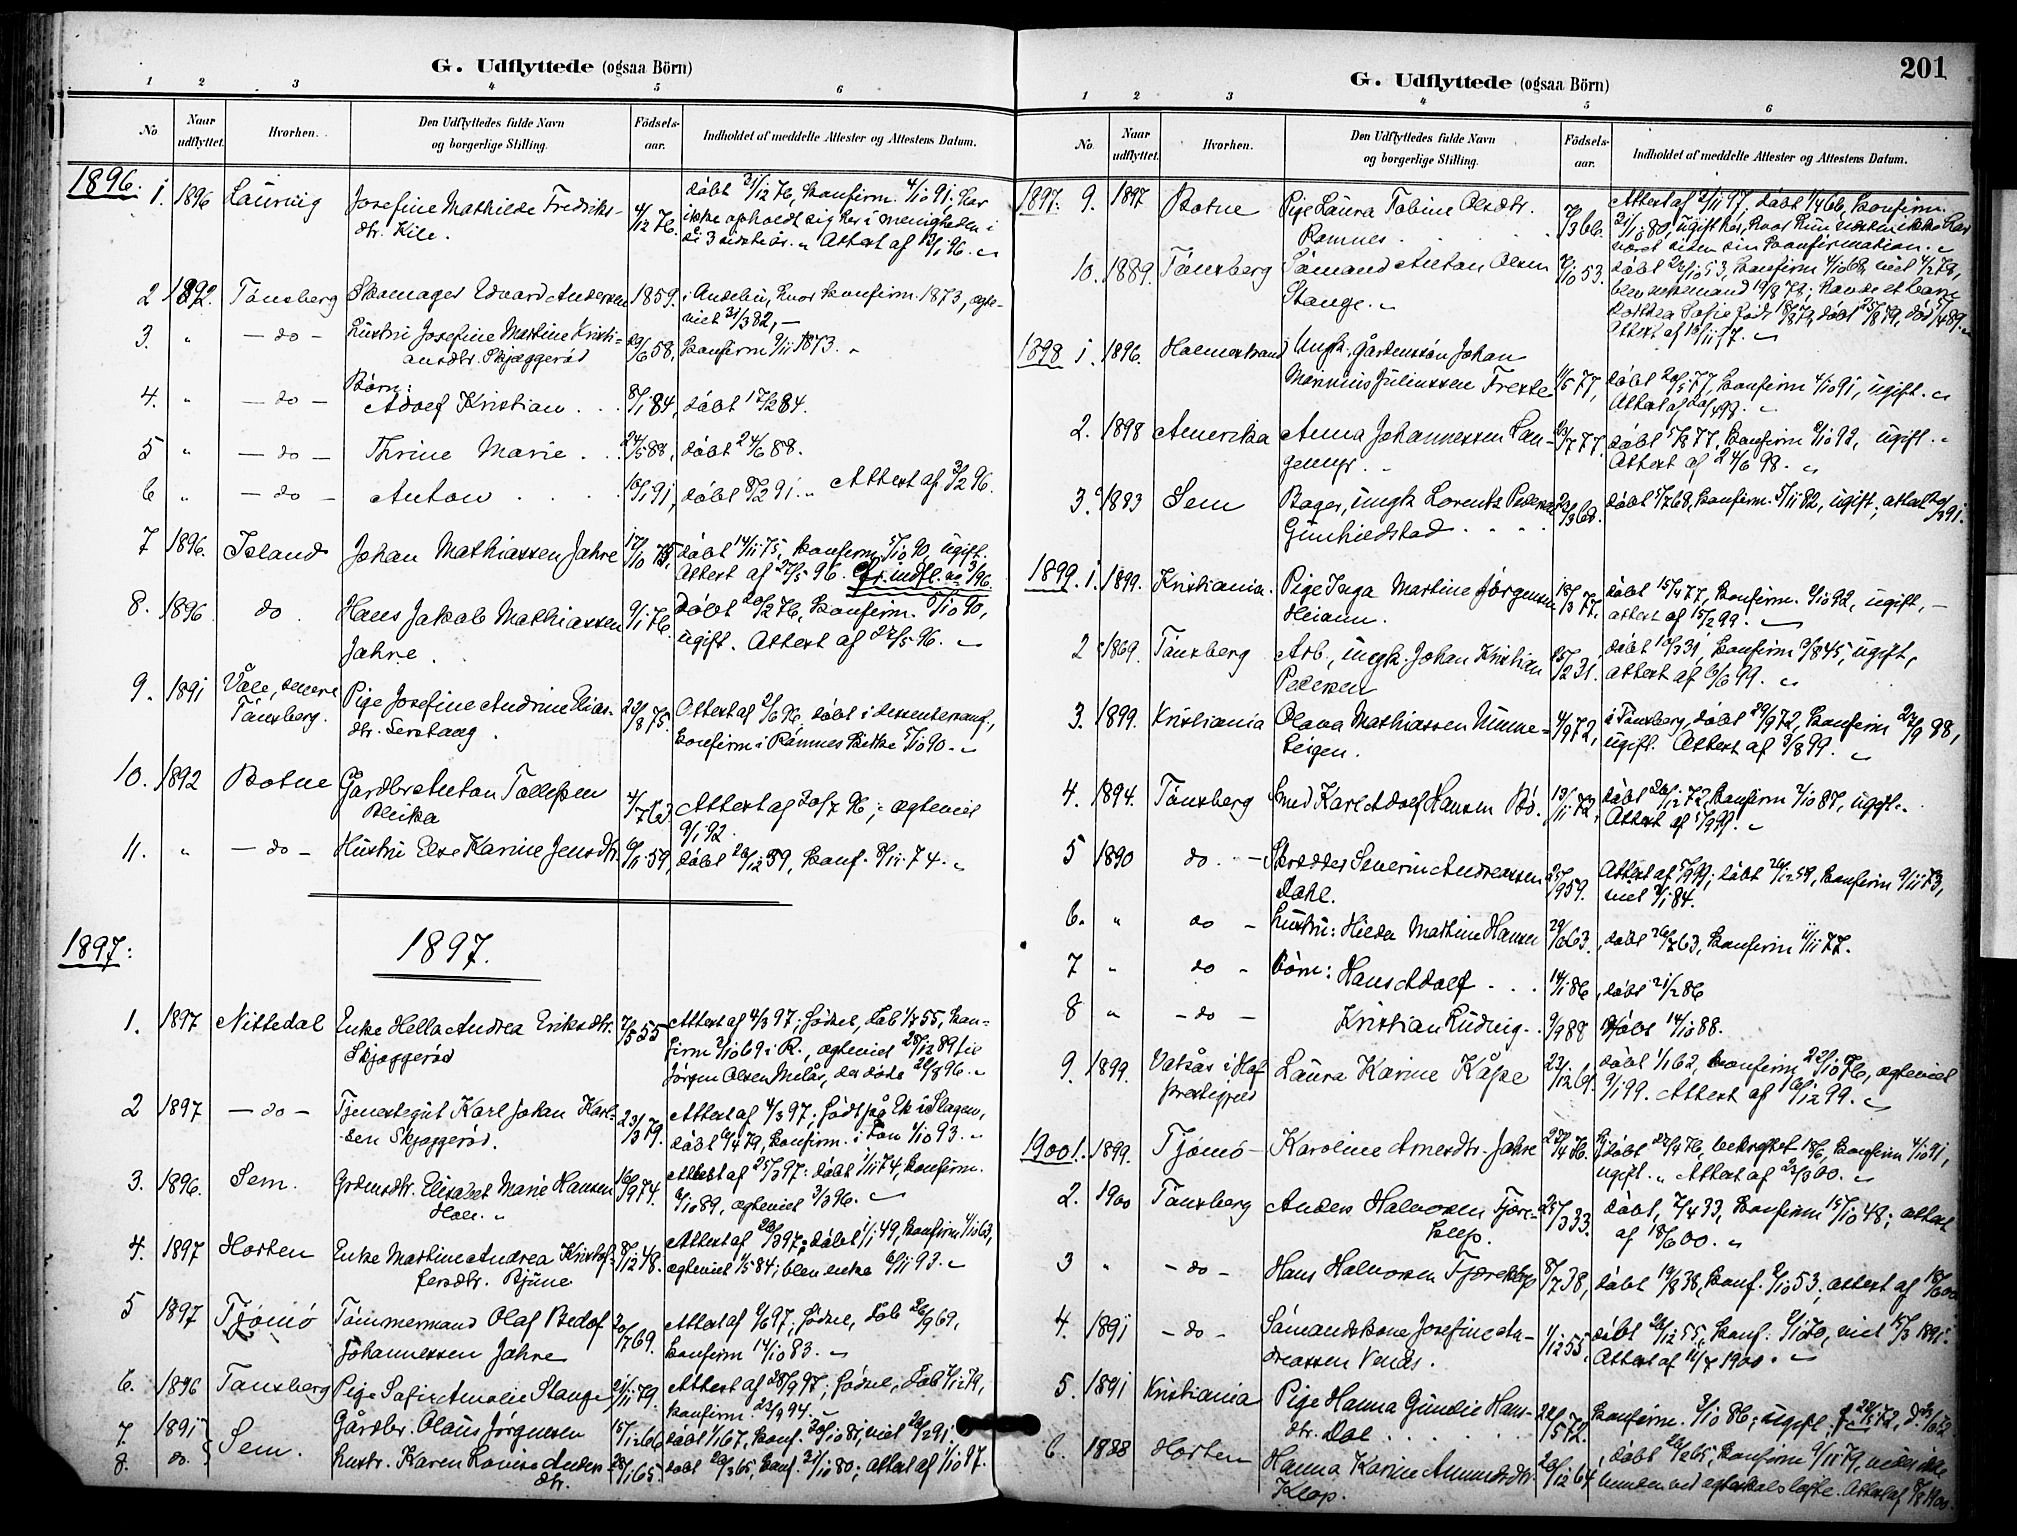 G. Udflyttede (ogsaa Börn)
1 2 3 4 5 6
No Naar udflyttet. Hvorhen. Den Udflyttedes fulde Navn og borgerlige Stilling. Födsels-aar. Indholdet af meddelte Attester og Attestens Datum.
1896. 1. 1896 Laurvig Josefine Mathilde Fredriks- 4/12 76. döbt 31/12 76, konfirm. 4/10 91, har
dtr. Kile. ikke opholdt sig her i menigheden i
de 3 sidste år. Attest af 13/1 96.
2 1892. Tönsberg Skomager Edvard Andersen 1859. i Andebu, hvor konfirm. 1873, ægte-
viet 31/3 82, —
3. " — do — Hustru Josefine Martine Kristi- 29/6 58, konfirm 9/11 1873.
ansdtr. Skjæggeröd
Börn:
4. " — do — Adolf Kristian . . 8/1 84, döbt 17/2 84.
5 " — do — Thrine Marie . . 24/5 88, döbt 24/6 88.
6 " — do — Anton . . . . 10/1 91, döbt 8/2 91. Attest af 3/2 96.
7 1896. Island Johan Mathiassen Jahre 17/10 75, döbt 14/11 75, konfirm. 5/10 90, ugift.
Attest af 27/5 96. Cfr. indfl.
8. 1896 do. Hans Jakob Mathiassen 9/1 76. Döbt 20/2 76, konfirm. 5/10 90,
Jahre. ugift. Attest af 27/5 96.
9. 1891 Våle, senere Pige Josefine Andrine Elias- 29/8 75. Attest af 2/6 96, döbt i dissentersamf,
Tönsberg. dtr. konfirm i Ramnes kirke 5/10 90.
10. 1892 Botne Gårdbr. Anton Tollefsen 4/7 63 Attest af 20/7 96; ægteviet
Bleika 9/1 92.
11. " — do — Hustru Else Karine Jensdtr. 6/11 59, döbt 26/12 59, konf. 8/11 74.
1897: 1897.
1. 1897 Nittedal Enke Hella Andrea Eriksdtr. 7/5 55 Attest af 4/3 97; födsel, dåb 1/7 55, kon-
Skjæggeröd firm 3/10 69 i R., ægteviet 28/12 89 til
Jörgen Olsen Melås, der döde 26/8 96.
2 1897 — do — Tjenestegut Karl Johan Karl- 23/3 79. Attest af 4/3 97; födt på Ek i Slagen,
sen Skjæggeröd. döbt 6/4 79, konfirm. i 1/10 93.
3. 1896. Sem. Grdmsdtr. Elisabet Marie Hansen 16/9 74. Attest af 25/3 97: döbt 1/11 74, konfirm.
6/10 89, ægteviet 3/3 96.
4. 1897 Horten Enke Martine Andrea Kristof- 8/12 48. Attest af 29/3 97; döbt 1/1 49, konfirm 4/10 63,
fersdtr. Bjune ægteviet 1/5 84; blev enke 6/11 93.
5 1897 Tjömö Tömmermand Olaf Bedof 20/7 69. Attest af 9/6 97; födsel, dåb 26/9 69,
Johannessen Jahre konfirm 14/10 83.
6. 1896 Tönsberg Pige Sofie Amalie Stange 21/11 79. Attest af 28/9 97; födsel, dåb 7/12 79,
konfirm. 23/9 94.
7. 1891 Sem. Gårdbr. Olaus Jörgensen 15/12 66 döbt 1/1 67, konf. 30/10 81, viet 29/2 91.
8. do. Hustr. Karen Lovise Anders- 28/1 65 döbt 26/3 65, konf. 31/10 80; attest af 1/10 97.
dtr.
201
G. Udflyttede (ogsaa Börn)
1 2 3 4 5 6
No. Naar udflyttet. Hvorhen. Den Udflyttedes fulde Navn og borgerlige Stilling. Födsels-aar. Indholdet af meddelte Attester og Attestens Datum.
1897: 9. 1897 Botne Pige Laura Tobine Olsdtr. 7/3 66. Attest af 2/11 97, döbt 1/4 66, konfirm.
Ramnes. 31/10 80, ugift her, hvor hun næsten ikke har
været siden sin konfirmation.
10. 1889. Tönsberg Sömand Anton Olsen 2/10 53. döbt 22/10 53, konfirm 4/10 68, viet 4/2 79,
Stange. blev enkemand 19/8 79; havde et barn
Attest af 16/11 97.
1898 1. 1896. Holmestrand Ungk. Gårdmssön Johan
Marinius Juliussen Freste 11/5 77, döbt 20/5 77, konfirm 4/10 91, ugift.
Attest af 20/4 98.
2. 1898 Amerika Anna Johannessen Lan- 23/7 77. döbt 5/8 77, konfirm 2/10 92, ugift.
gemyr. Attest af 24/6 98.
3. 1883 Sem Bager, ungk. Lorentz Pedersen 22/3 68. döbt 5/7 68, konfirm. 5/11 82, ugift; attest
Gunhildstad
1899. 1. 1899. Kristiania. Pige Inga Martine Jörgensen 18/3 77. döbt 15/4 77, konfirm. 2/10 92, ugift, —
Heiann. attest af 15/2 99.
2 1869. Tönsberg Arb., ungk. Johan Kristian 25/2 31. döbt 13/3 31, konfirm 9/8 45, ugift,
Pedersen attest af 6/6 99.
3. 1899. Kristiania Olava Mathiassen Unne- 4/9 72, i Tönsberg, döbt 29/9 72, konfirm 27/9 88,
ugift. Attest af 9/8 99.
4. 1894. Tönsberg Smed Karl Adolf Hansen Bö. 19/11 72, döbt 26/12 72, konfirm 2/10 87, ugift.
Attest af 5/9 99.
5 1890 do. — Skrædder Severin Andreassen 25/9 59. Attest af 5/9 99; döbt 26/12 59, konfirm 9/11 73,
Dahl. viet 2/1 84.
6. " do — Hustru: Hilda Martine Hansen 29/6 63. döbt 26/7 63, konfirm 11/11 77.
7 " do — Börn: Hans Adolf . . . 14/1 86, döbt 21/2 86
8 " — do — Kristian Ludvig. 9/9 88 döbt 14/10 88.
9. 1899. Vatsås i Hof Laura Karine Kåpe 22/12 61. döbt 1/1 62, konfirm 22/10 76, ægteviet
præstegjeld 9/1 99. Attest af 16/12 99.
1900 1. 1899. Tjömö — Karoline Arnesdtr. Jahre 22/4 76. Hj.döbt 27/4 76, bekræftet 18/6, konfirm 4/10 91,
ugift. Attest af 23/3 00.
2. 1900 Tönsberg Anders Halvorsen Fjære- 25/3 33. döbt, 7/4 33, konfirm 15/10 48; attest
klep. af 18/6 00.
3 " — do — Hans Halvorsen Fjæreklep 8/7 38, döbt 19/8 38, konf. 2/10 53, attest af 18/6 00
4. 1891 — do — Sömandskone Josefine An- 1/12 55, döbt 26/12 55, konf. 9/10 70, viet 15/3 1891.
dreassen Vends. Attest af 11/7 1900.
5. 1891 Kristiania Pige Hanna Gundie Hans- 22/5 72. konfirm. 3/10 86; ugift;
dtr. Dal
6. 1888 Horten Hanna Karine Amundsdtr. 20/12 64, döbt 26/2 65, konfirm 9/11 79, vides ikke
Klop. bunden ved ægteskabslöfte. Attest af 9/8 1900.